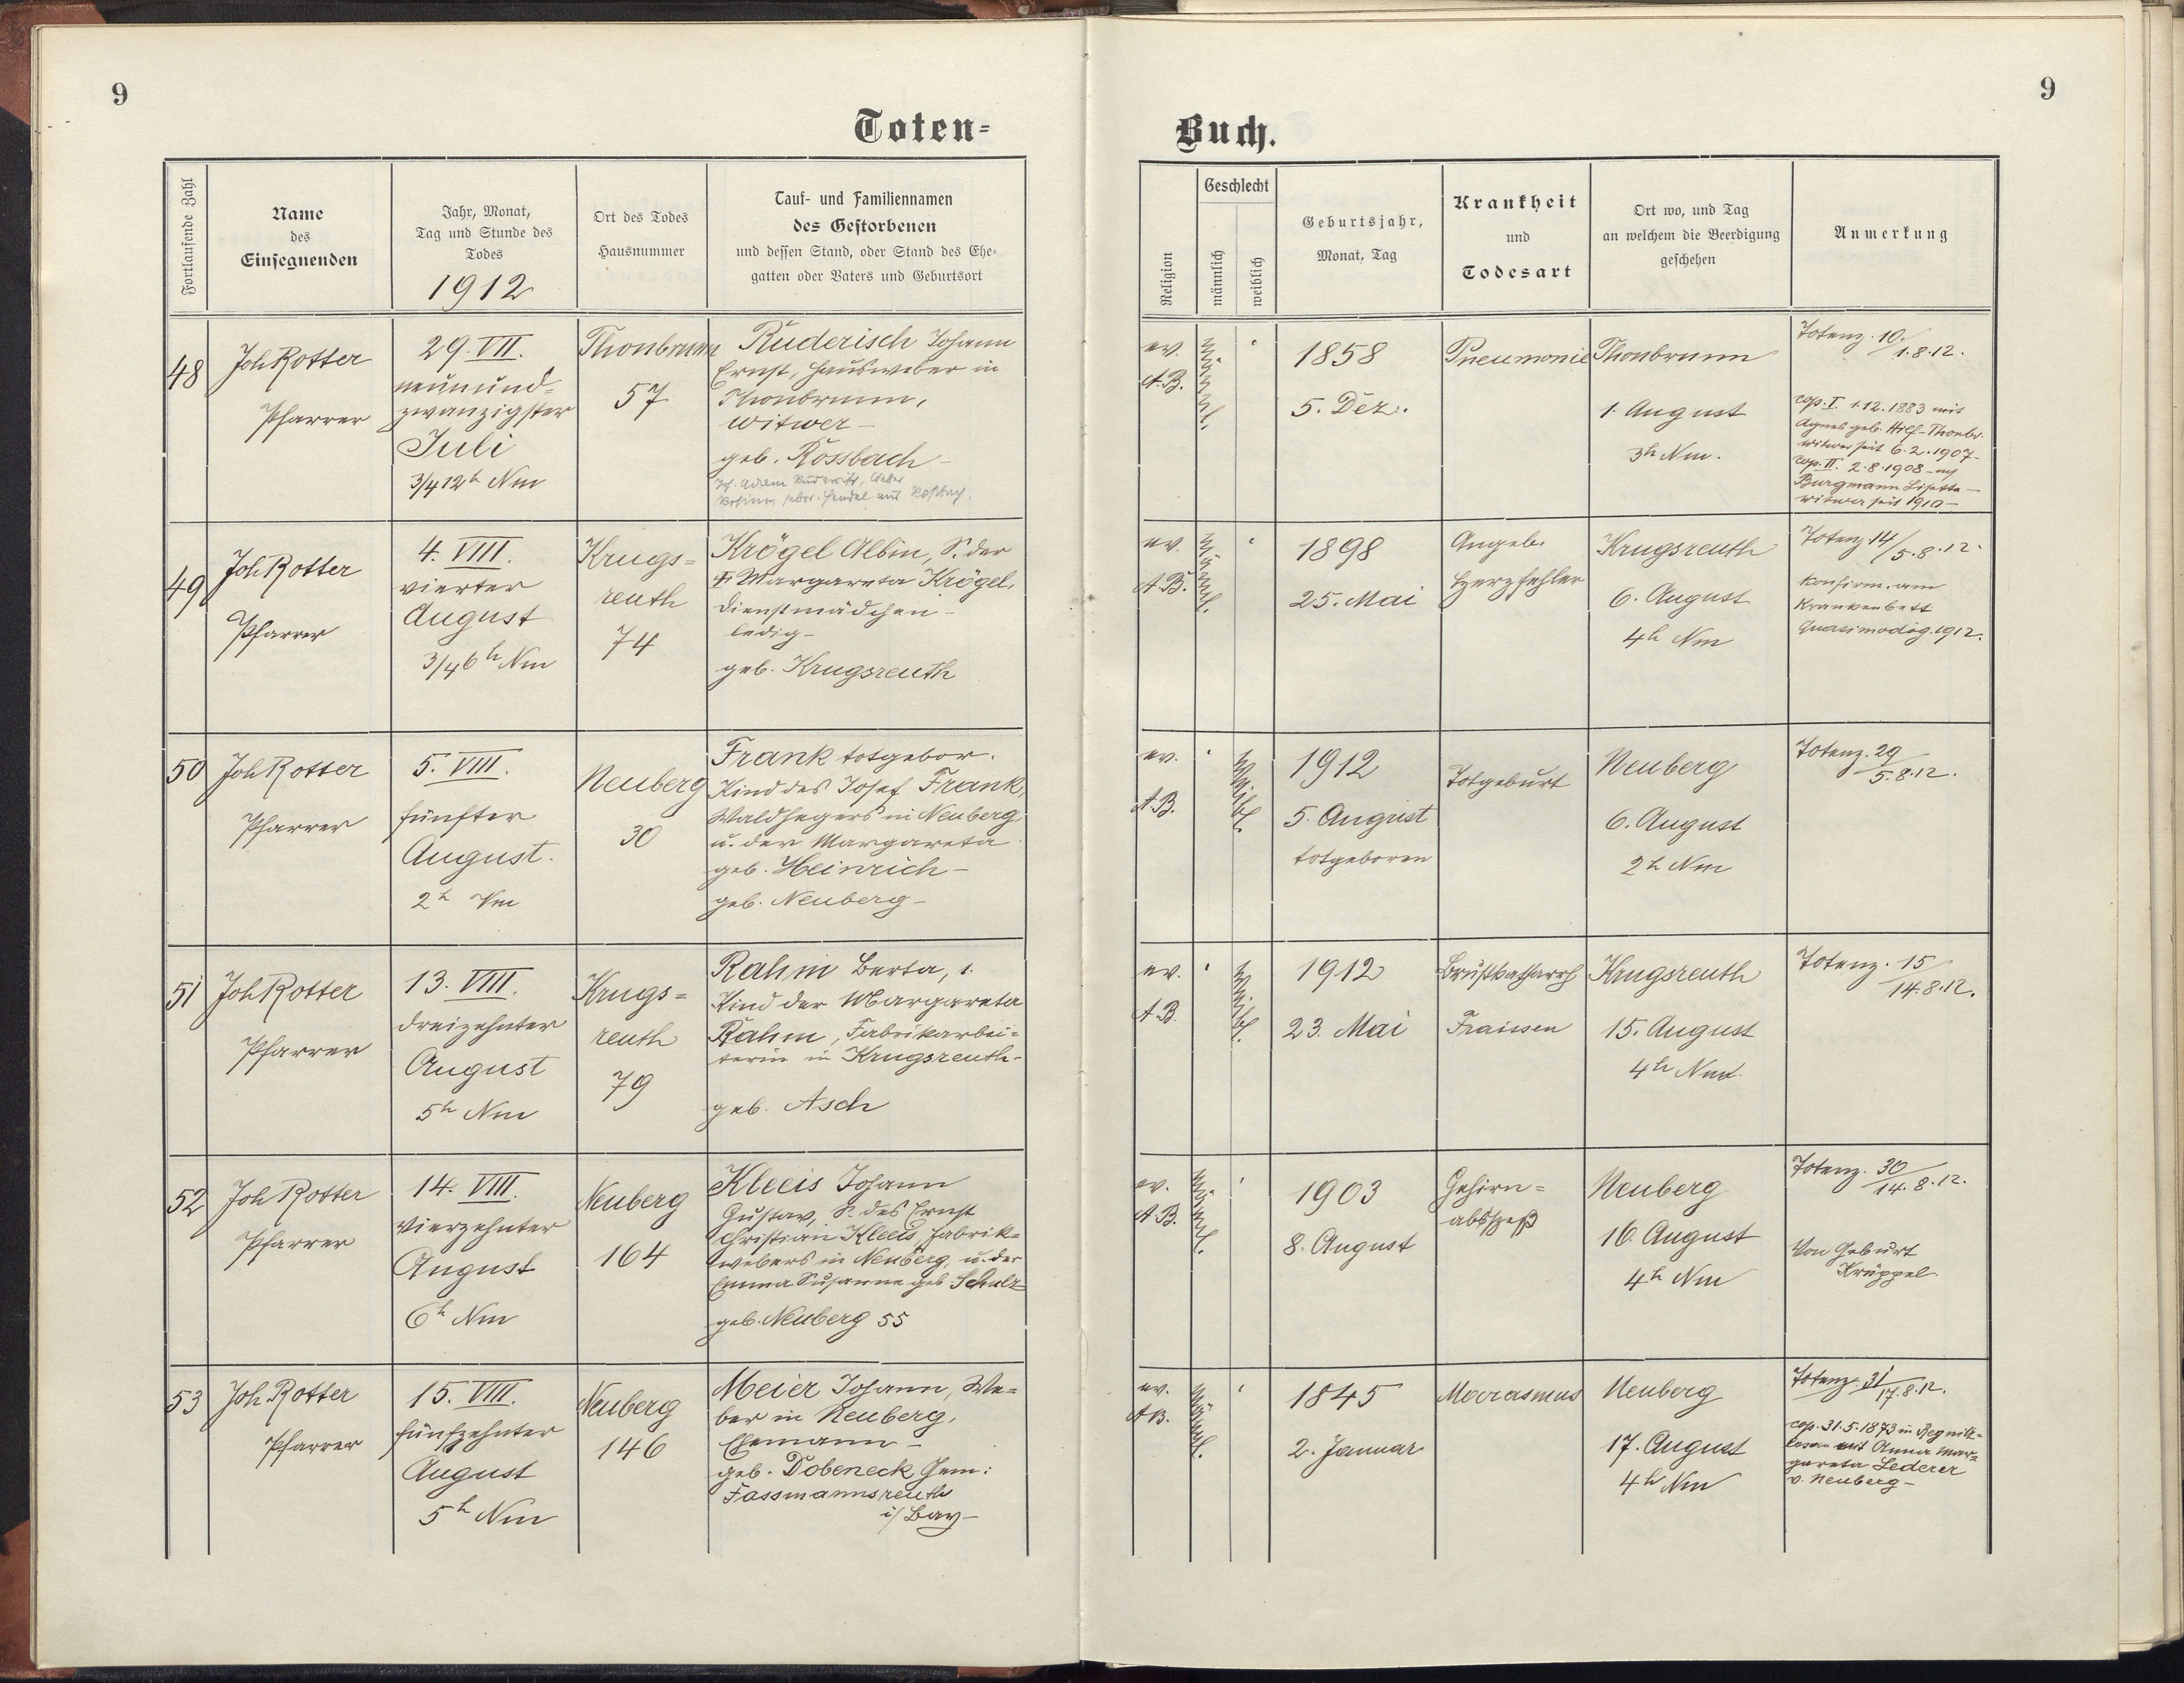 9
Toten-
Fortlaufende Zahl
Name
des
Einsegnenden
Jahr, Monat,
Tag und Stunde des
Todes
1912
Ort des Todes
Hausnummer
Tauf- und Familiennamen
des Gestorbenen
und dessen Stand, oder Stand des Ehe-
gatten oder Vaters und Geburtsort
48
Joh Rotter
Pfarrer
29. VII.
neunund-
zwanzigster
Juli
3/4 12h Nm
Thonbrunn
57
Ruderisch Johann
Ernst, Hausweber in
Thonbrunn,
Witwer –
geb. Rossbach –
49
Joh Rotter
Pfarrer
4. VIII.
vierter
August
3/4 6h Nm
Krugs-
reuth
74
Krögel Albin, S. der
Margareta Krögel,
Dienstmädchen –
ledig –
geb. Krugsreuth
50
Joh Rotter
Pfarrer
5. VIII.
fünfter
August.
2h Vm
Neuberg
30
Frank totgebor.
Kind des Josef Frank,
Waldhegers in Neuberg
u. der Margareta
geb. Heinrich –
geb. Neuberg –
51
Joh Rotter
Pfarrer
13. VIII.
dreizehnter
August
5h Nm
Krugs-
reuth
79
Rahm Berta, 1.
Kind der Margareta
Rahm, Fabrikarbei-
terin in Krugsreuth –
geb. Asch
52
Joh Rotter
Pfarrer
14. VIII.
vierzehnter
August
6h Nm
Neuberg
164
Kleeis Johann
Gustav, S. des Ernst
Christian Kleeis, Fabrik-
webers in Neuberg, u. der
Emma Susanne geb Schulz
geb. Neuberg 55
53
Joh. Rotter
Pfarrer
15. VIII.
fünfzehnter
August
5h Nm
Neuberg
146
Meier Johann, We-
ber in Neuberg,
Ehemann –
geb. Dobeneck, Gem:
Fassmannsreuth
i/ Bay –
9
Buch.
Religion
Geschlecht
männlich
weiblich
Geburtsjahr,
Monat, Tag
Krankheit
und
Todesart
Ort wo, und Tag
an welchem die Beerdigung
geschehen
Anmerkung
ev.
A.B.
männl.
1858
5. Dez.
Pneumonie
Thonbrunn
1. August
3h Nm.
Totenz. 10/1.8.12.
cop. I. 1.12.1883 mit
Agnes geb. Hilf-Thonbr.
Witwer seit 6.2.1907 –
cop. II. 2.8.1908
Burgmann Lisette –
Witwer seit 1910 –
ev.
A.B.
männl.
1898
25. Mai
Angeb.
Herzfehler
Krugsreuth
6. August
4h Nm
Totenz. 14/5.8.12.
Konfirm. am
Krankenbett
Quasimodog. 1912.
ev.
A.B.
weibl.
1912
5. August
totgeboren
Totgeburt
Neuberg
6. August
2h Nm
Totenz. 29/5.8.12.
ev.
A.B.
weibl.
1912
23. Mai
Brustkatharrh
Fraissen
Krugsreuth
15. August
4h Nm.
Totenz. 15/14.8.12.
ev.
A.B.
männl.
1903
8. August
Gehirn-
abszeß
Neuberg
16. August
4h Nm
Totenz. 30/14.8.12.
Von Geburt
Krüppel.
ev.
A.B.
männl.
1845
2. Januar
Marasmus
Neuberg
17. August
4h Nm
Totenz. 31/17.8.12.
cop. 31.5.1873 in Regnitz-
losau mit Anna Mar-
gareta Lederer
v. Neuberg –